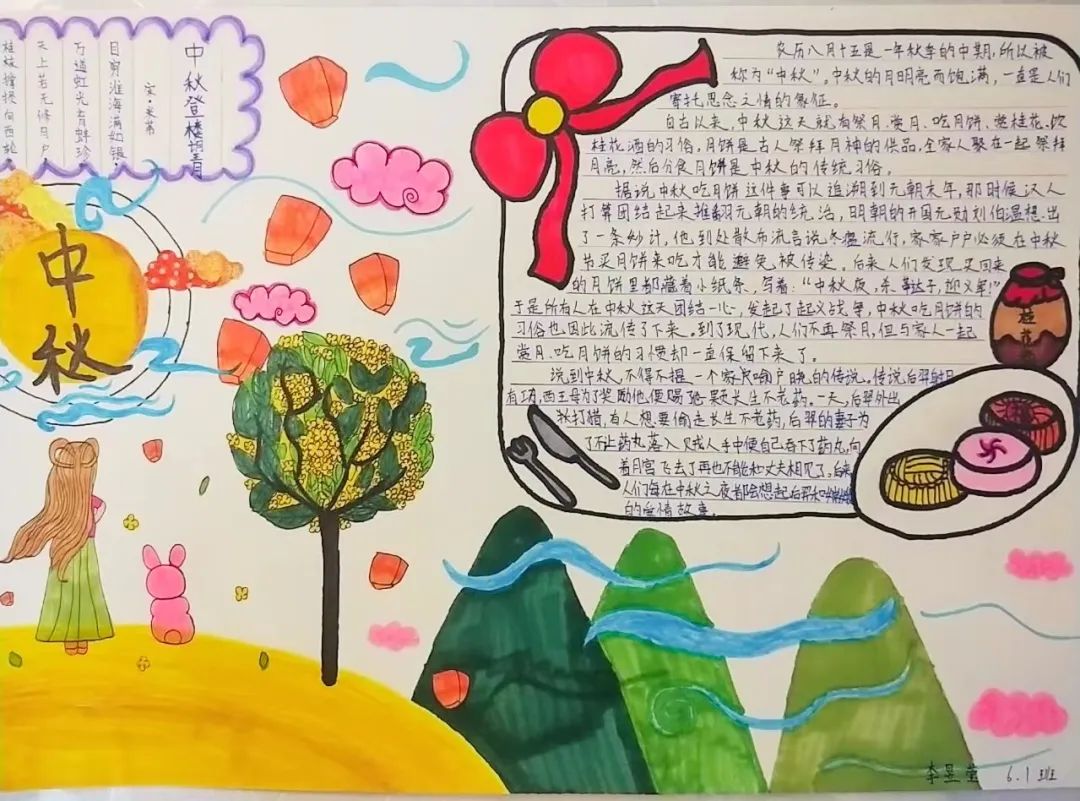 中秋登楼望月
宋·米芾
目穷淮海满如银，
万道虹光育蚌珍
天上若无修月户
桂枝撑损向西轮
中秋
农历八月十五是一年秋季的中期，所以被
称为“中秋”，中秋的月明亮而饱满，一直是人们
寄托思念之情的象征。
自古以来，中秋这天就有祭月、赏月、吃月饼、赏桂花、饮
桂花酒的习俗，月饼是古人祭拜月神的供品，全家人聚在一起祭拜
月亮，然后分食月饼是中秋的传统习俗。
据说中秋吃月饼这件事可以追溯到元朝末年，那时候汉人
打算团结起来推翻元朝的统治，明朝的开国元勋刘伯温想出
了一条妙计，他到处散布流言说冬瘟流行，家家户户必须在中秋
节买月饼来吃才能避免被传染。后来人们发现买回来
的月饼里都藏着小纸条，写着：“中秋夜，杀鞑子，迎义军！”
于是所有人在中秋这天团结一心，发起了起义战争，中秋吃月饼的
习俗也因此流传了下来。到了现代，人们不再祭月，但与家人一起
赏月、吃月饼的习惯却一直保留下来了。
说到中秋，不得不提一个家民喻户晓的传说。传说后羿射日
有功，西王母为了奖励他便赐她一颗长生不老药。一天，后羿外出
秋打猎，有人想要偷走长生不老药，后羿的妻子为
了不让药丸落入贼人手中便自己吞下了药丸，向
着月宫飞去了再也不能和丈夫相见了。后来
人们每在中秋之夜都会想起后羿和嫦娥
的爱情故事。
桂花
李昱莹 6.1班